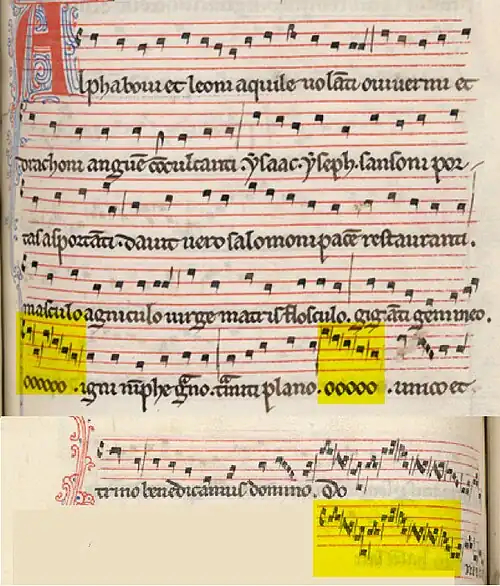 Alpha boui et leoni aquile uolāti ouiuerni et
drachoni anguē cōculcanti . ysaac . yseph . sansoni por
tas asportāti . dauit uero salomoni pacē restauranti .
masculo agniculo uirge matris flosculo . gigāti gemineo .
oooooo . igni nīphe grāno . tāniti plano . ooooo . unico et
trino benedicamus domino . Do